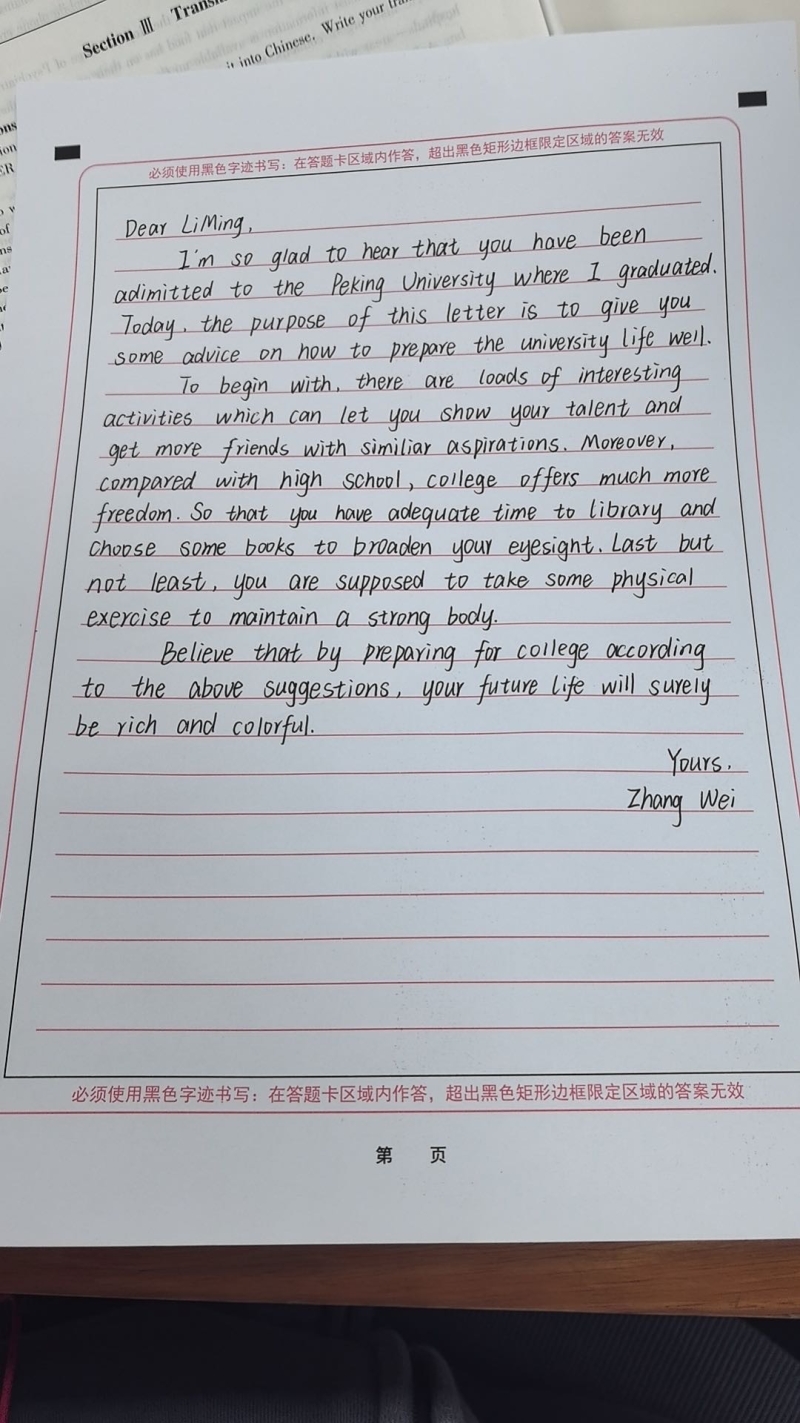 Section Ⅲ Trans
it into Chinese. Write your
必须使用黑色字迹书写：在答题卡区域内作答，超出黑色矩形边框限定区域的答案无效
Dear LiMing,
I'm so glad to hear that you have been
adimitted to the Peking University where I graduated.
Today, the purpose of this letter is to give you
some advice on how to prepare the university life well.
To begin with, there are loads of interesting
activities which can let you show your talent and
get more friends with similiar aspirations. Moreover,
compared with high school, college offers much more
freedom. So that you have adequate time to library and
choose some books to broaden your eyesight. Last but
not least, you are supposed to take some physical
exercise to maintain a strong body.
Believe that by preparing for college according
to the above suggestions, your future life will surely
be rich and colorful.
Yours,
Zhang Wei
必须使用黑色字迹书写：在答题卡区域内作答，超出黑色矩形边框限定区域的答案无效
第 页